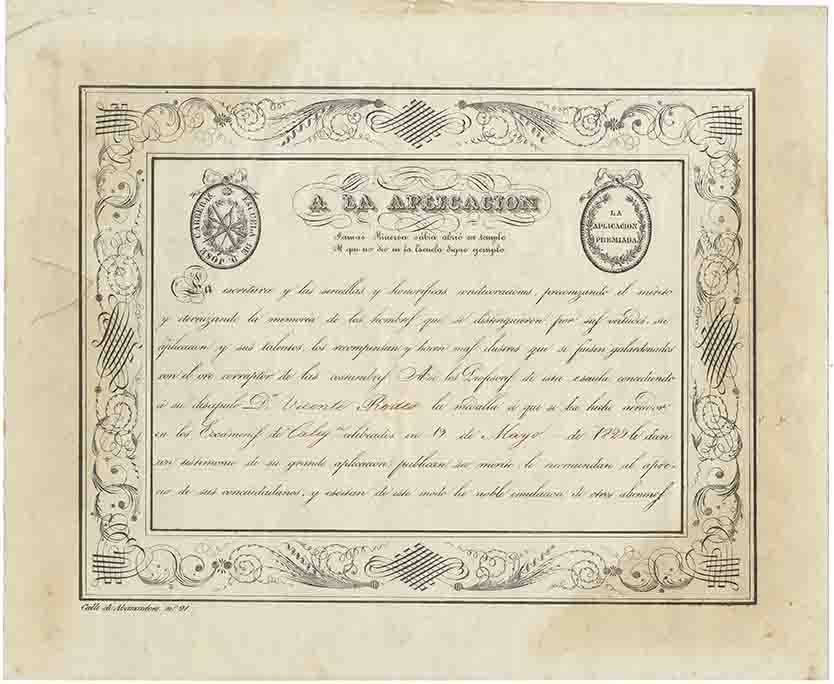 ESCUELA DE D. JOSÉ CARDEÑA
A LA APLICACION
LA
APLICACION
PREMIADA
Jamas Minerva sábia abrió su templo
Al que no dio en la Escuela digno egemplo
La escritura y las sencillas y honorificas condecoraciones, preconizando el mérito
y eternizando la memoria de los hombres que se distinguieron por sus virtudes, su
aplicacion y sus talentos, los recompensan y hacen mas ilustres que si fuesen galardonados
con el oro corruptor de las costumbres. Asi los Profesores de esta escuela concediendo
á su discipulo Dn. Vicente la medalla á que se ha hecho acreedor
en los Examenes de celebrados en 19 de Mayo de 1829 le dan
un testimonio de su grande aplicacion, publican su merito, le recomiendan al apre-
cio de sus conciudadanos, y escitan de este modo la noble emulacion de otros alumnos
Calle de nº 21.